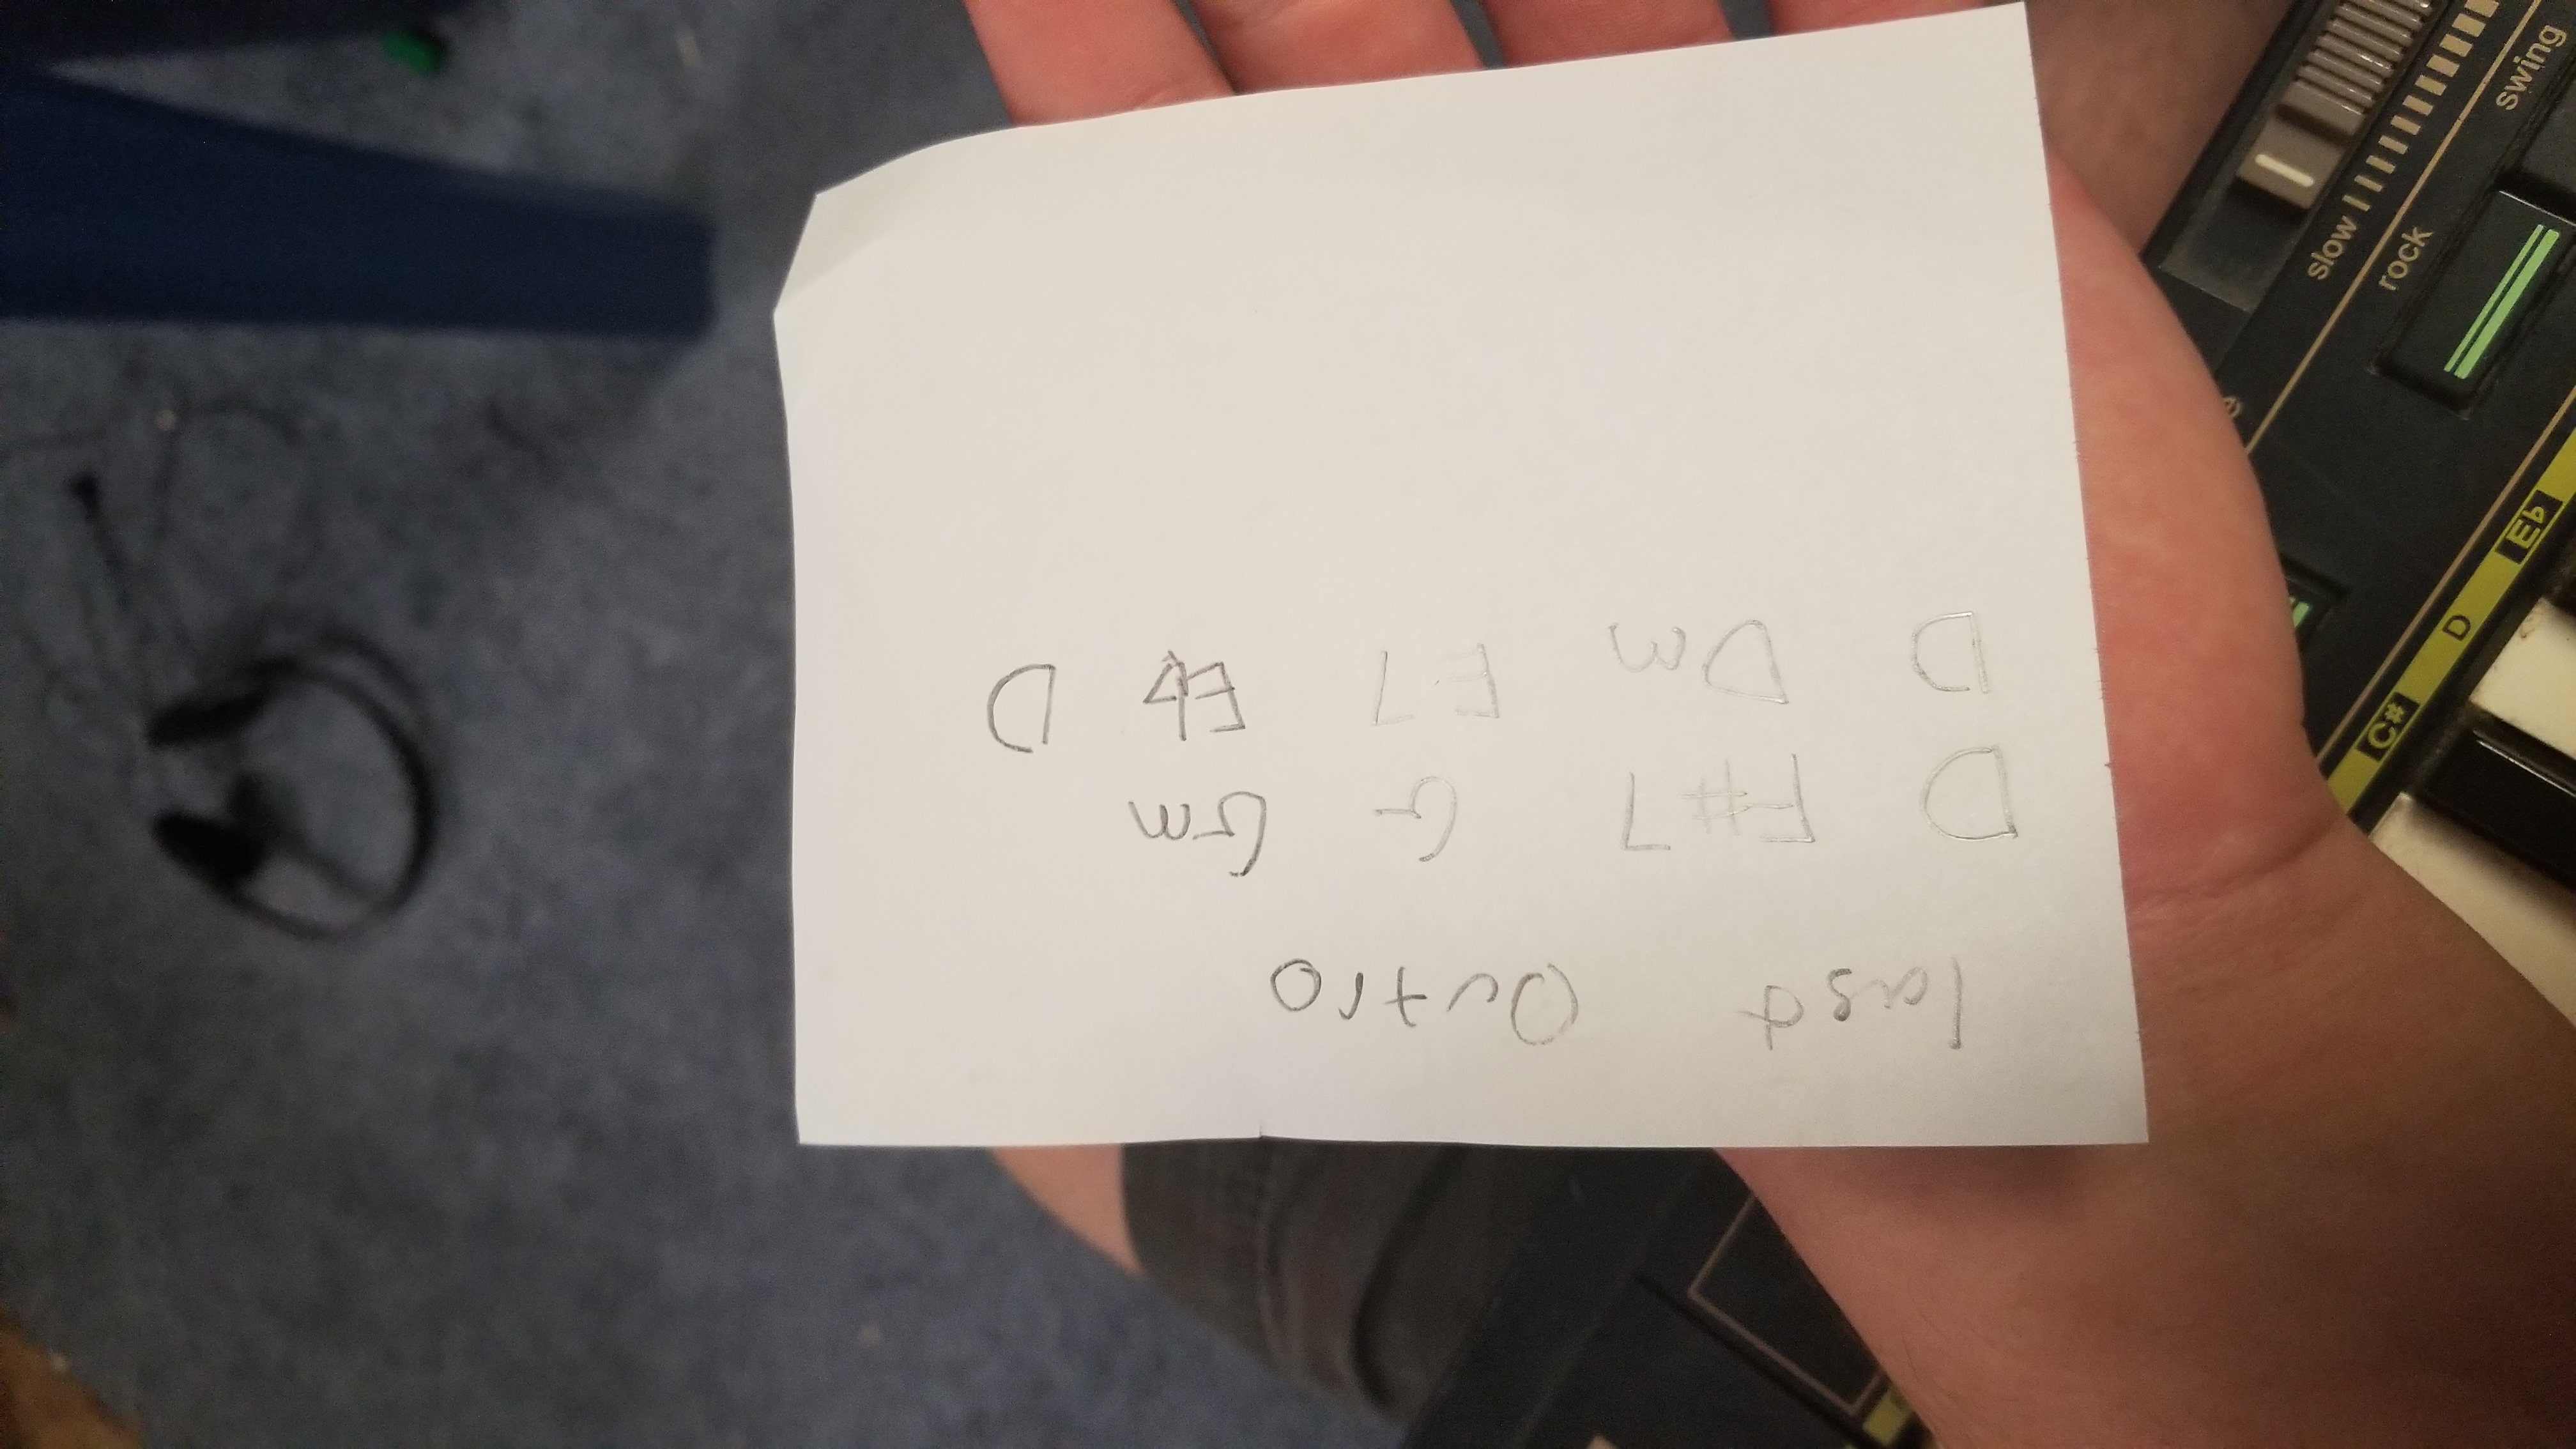 last Outro
D F#7 G Gm
D Dm E7 Eb D
swing
slow
rock
Eb
D
C#